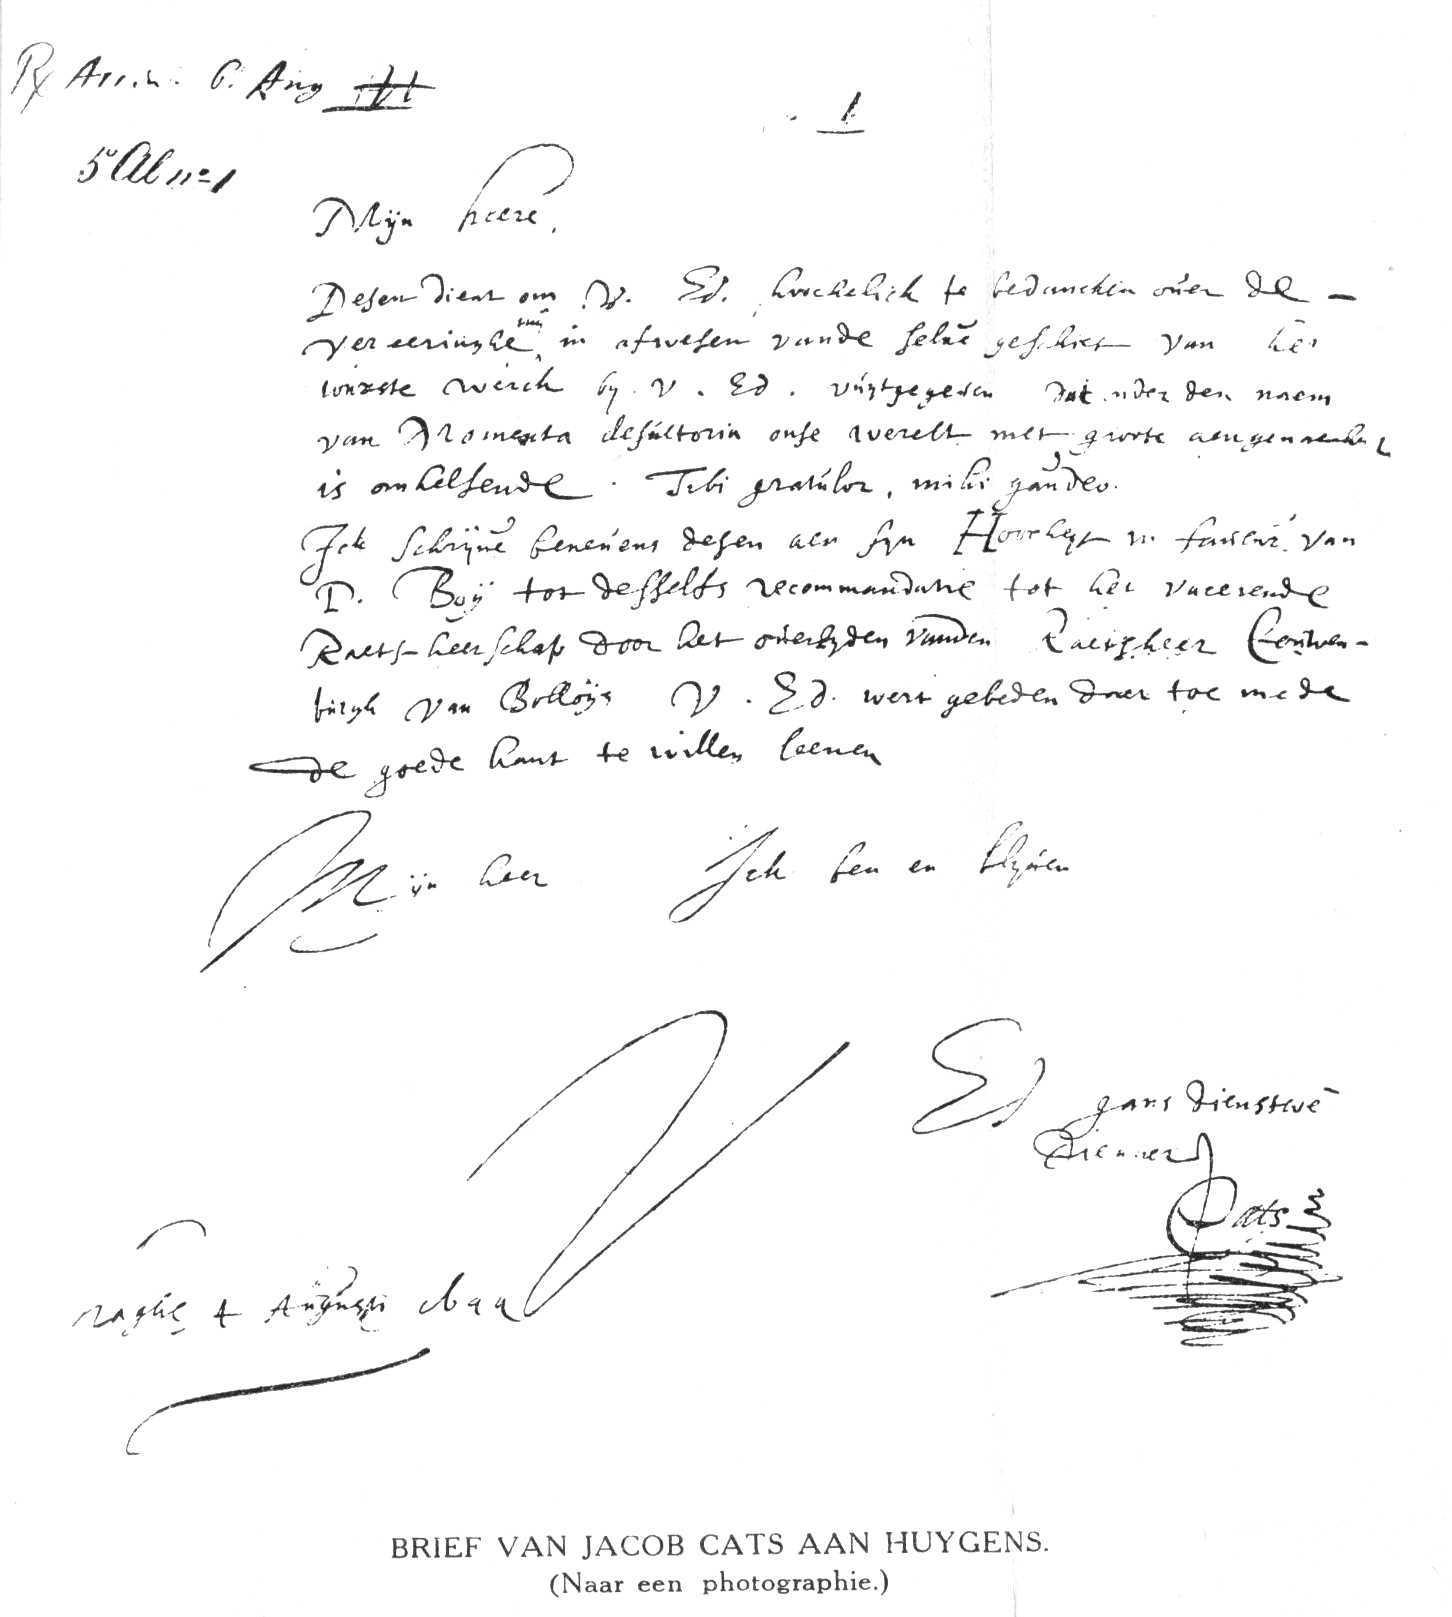 6. Aug
1
5 Ab no 1
Mijn heere,
Desen dient om V. Ed. hoochelick te bedancken over de
vereeringhe mij in afwesen vande selve geschiet van het
werck by V. Ed. uytgegeven dat onder den naem
van Momenta desultoria onse werelt met groote
is omhelsende. Tibi gratulor, mihi gaudeo.
Ick schryve benevens desen aen syn Hoocheyt in faveur van
D. Boÿ tot desselfs recommandatie tot het vacerende
Raets-heerschap door het overlyden vanden Raetsheer
burgh van V. Ed. wert gebeden daer toe mede
de goede hant te willen leenen
Mijn heer Ick ben en blyven
V Ed gans dienstwe
Diener
Cats
4 Augusti
BRIEF VAN JACOB CATS AAN HUYGENS.
(Naar een photographie.)